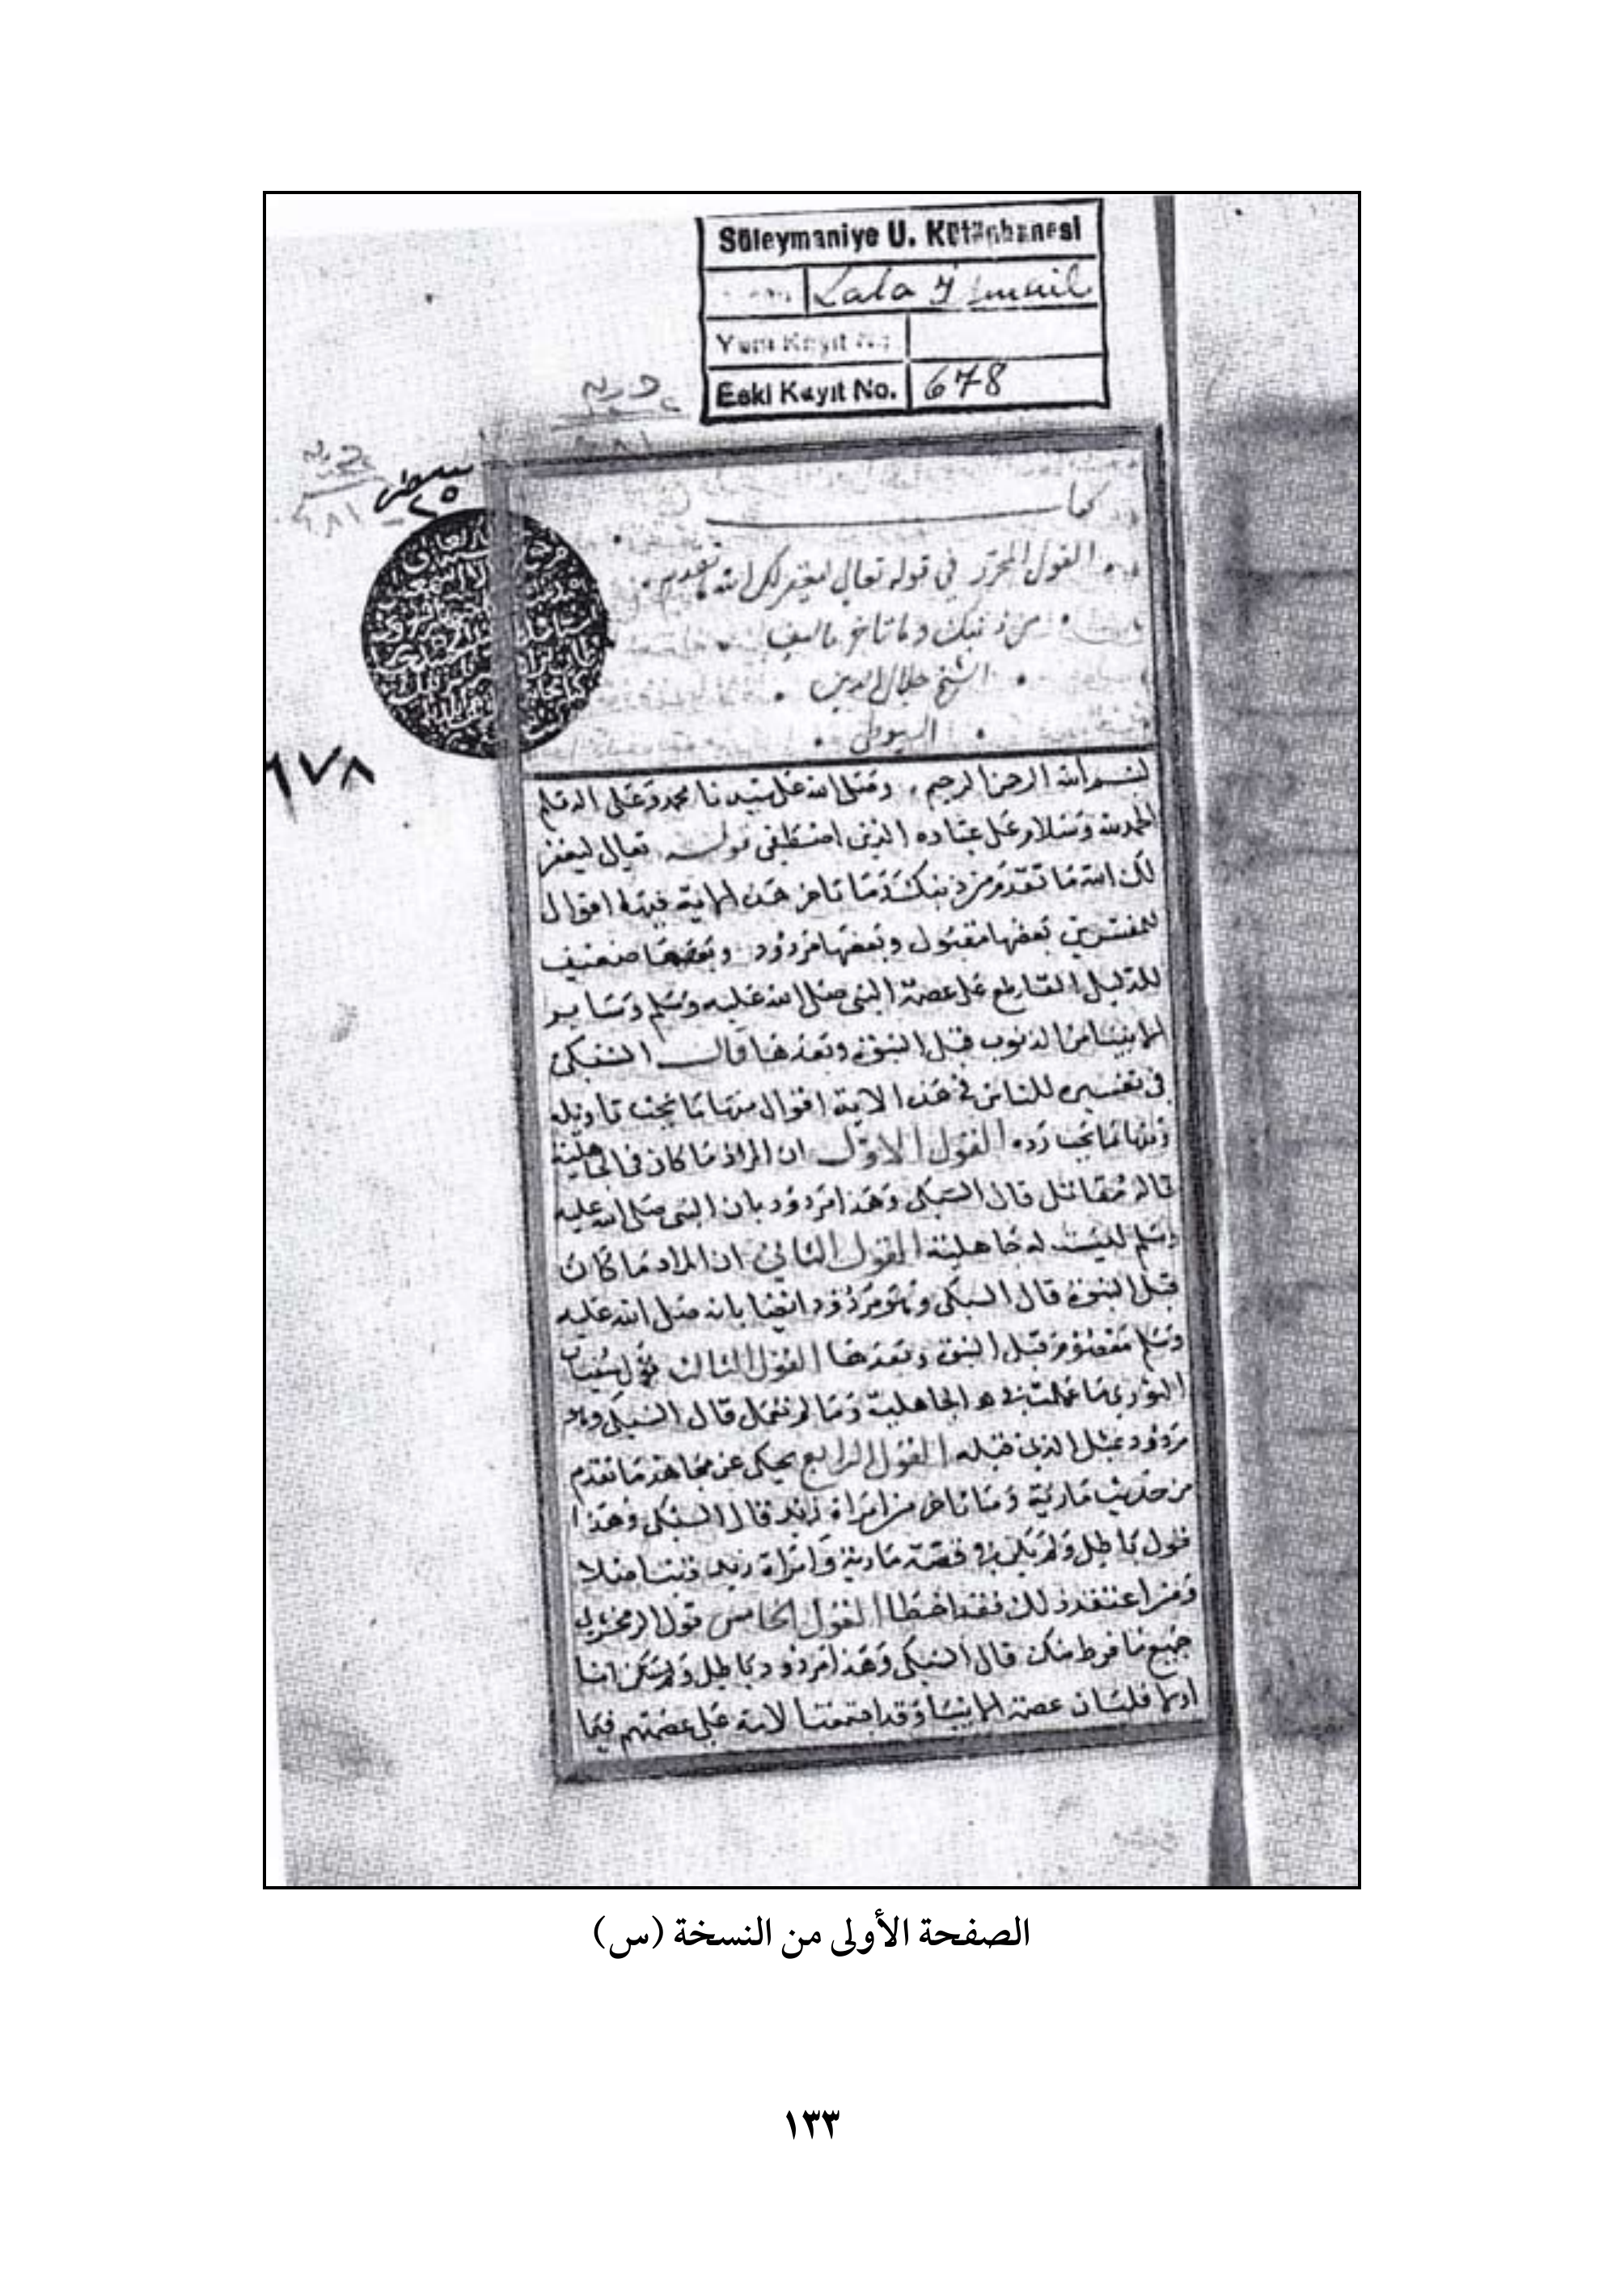 Süleymaniye U. Kütüphanesi
Lala İsmail
Yeni Kayıt No.
Eski Kayıt No. 678
٦٧٨
كتاب
القول المحرر في قوله تعالى ليغفر لك الله ما تقدم
من ذنبك وما تاخر تاليف
الشيخ جلال الدين
السيوطي
بسم الله الرحمن الرحيم وصلى الله على سيدنا محمد وعلى اله وسلم
الحمد لله وسلام على عباده الذين اصطفى قوله تعالى ليغفر
لك الله ما تقدم من ذنبك وما تاخر هذه الاية فيها اقوال
للمفسرين بعضها مقبول وبعضها مردود وبعضها ضعيف
للدليل القاطع على عصمة النبي صلى الله عليه وسلم وساير
الانبيا من الذنوب قبل النبوة وبعدها قال السبكي
في تفسيره للناس في هذه الاية اقوال منها ما يجب تاويله
ومنها ما يجب رده القول الاول ان المراد ما كان في الجاهلية
قاله مقاتل قال السبكي وهذا مردود بان النبي صلى الله عليه
وسلم ليست له جاهلية القول الثاني ان المراد ما كان
قبل النبوة قال السبكي وهو مردود ايضا بانه صلى الله عليه
وسلم معصوم قبل النبوة وبعدها القول الثالث قول سفيان
الثوري ما عملت في الجاهلية وما لم تعمل قال السبكي وهو
مردود بمثل الذي قبله القول الرابع يحكى عن مجاهد ما تقدم
من حديث مارية وما تاخر من امراة زيد قال السبكي وهذا
قول باطل ولم يكن في قصة مارية وامراة زيد ذنب اصلا
ومن اعتقد ذلك فقد اخطا القول الخامس قول الزمخشري
جميع ما فرط منك قال السبكي وهذا مردود باطل
اولا فلبيان عصمة الانبيا وقد اجتمعت الامة على عصمتهم فيما
الصفحة الأولى من النسخة (س)
١٣٣